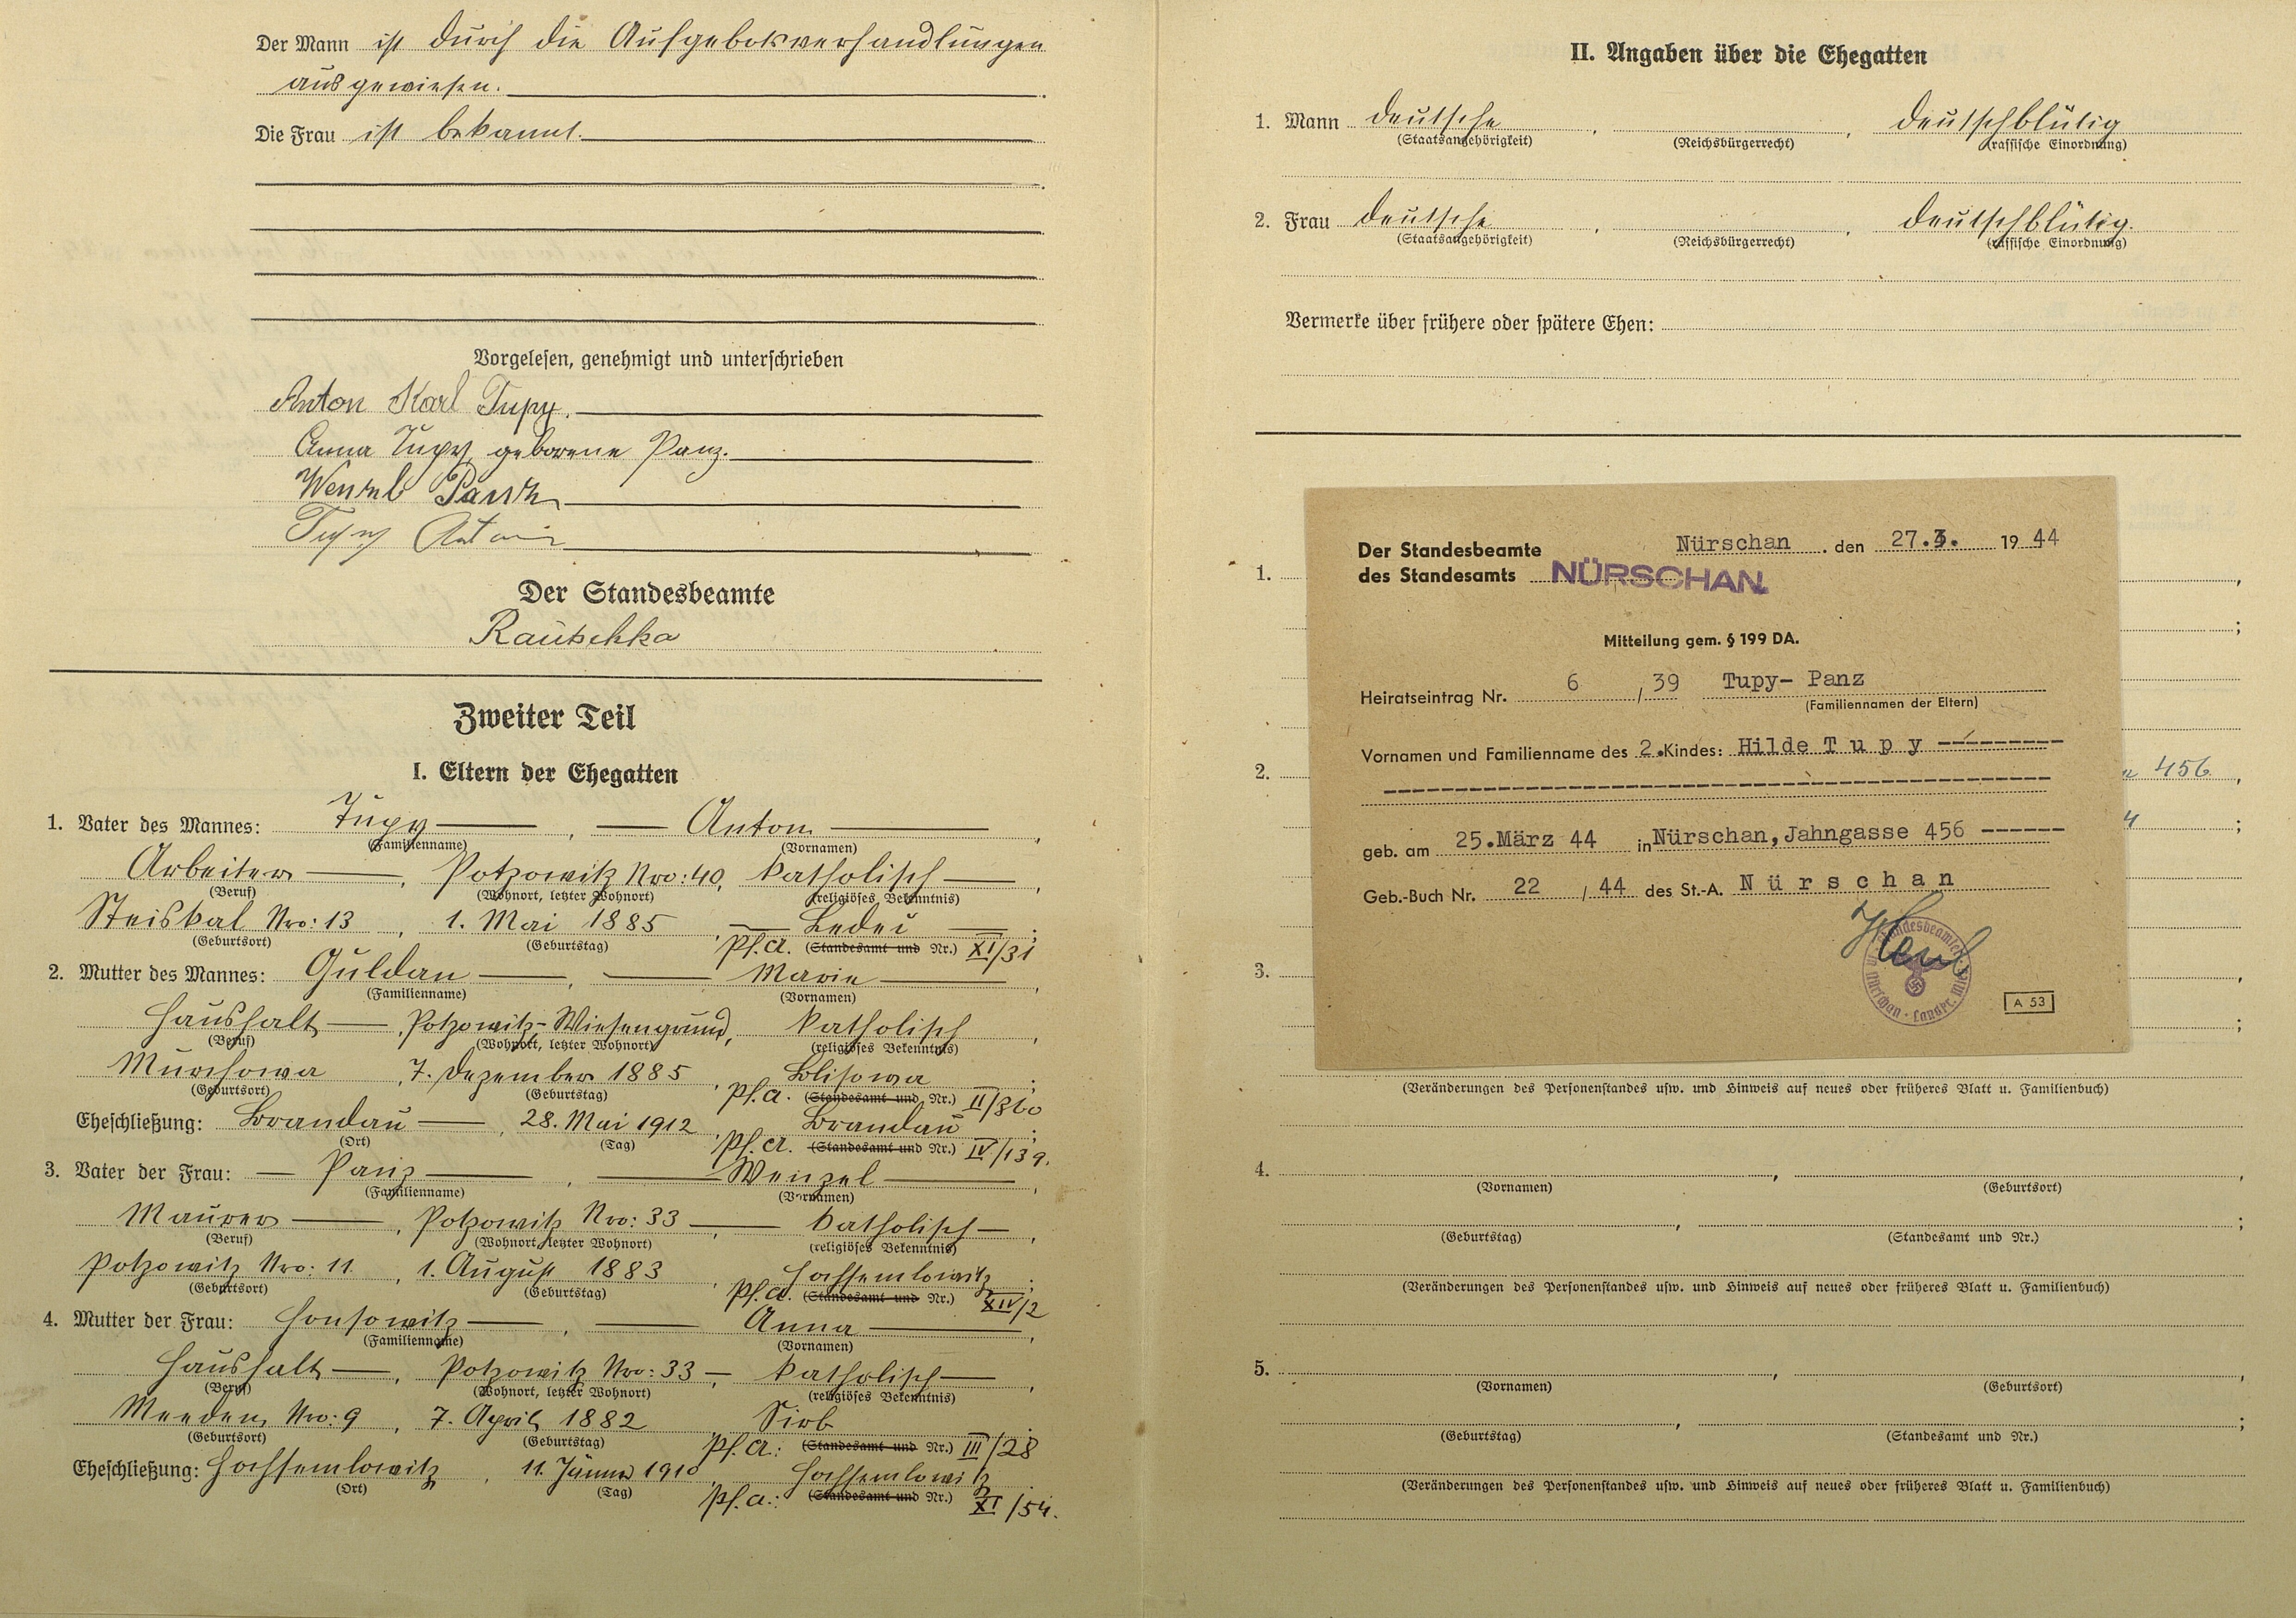 Der Mann ist durch die Aufgebotsverhandlungen
ausgewiesen.
Die Frau ist bekannt.
Vorgelesen, genehmigt und unterschrieben
Anton Karl Tupy.
Anna Tupy, geborene Panz.
Wenzel Panz
Tupy Anton
Der Standesbeamte
Rautschka
Zweiter Teil
I. Eltern der Ehegatten
1. Vater des Mannes: Tupy, Anton,
(Familienname) (Vornamen)
Arbeiter, Potzowitz Nro: 40, katholisch,
(Beruf) (Wohnort, letzter Wohnort) (religiöses Bekenntnis)
Steiskal Nro: 13, 1. Mai 1885, Ledec;
(Geburtsort) (Geburtstag) Pf.A. (Standesamt und Nr.) XI/31
2. Mutter des Mannes: Guldan, Marie,
(Familienname) (Vornamen)
Haushalt, Potzowitz-Wiesengrund, katholisch,
(Beruf) (Wohnort, letzter Wohnort) (religiöses Bekenntnis)
Murchowa, 7. Dezember 1885, Blisowa;
(Geburtsort) (Geburtstag) Pf.A. (Standesamt und Nr.) II/360
Eheschließung: Brandau, 28. Mai 1912, Brandau;
(Ort) (Tag) Pf.A. (Standesamt und Nr.) IV/139.
3. Vater der Frau: Panz, Wenzel,
(Familienname) (Vornamen)
Maurer, Potzowitz Nro: 33, katholisch,
(Beruf) (Wohnort, letzter Wohnort) (religiöses Bekenntnis)
Potzowitz Nro: 11, 1. August 1883, Hochsemlowitz;
(Geburtsort) (Geburtstag) Pf.A. (Standesamt und Nr.) XIV/2
4. Mutter der Frau: Honsowitz, Anna,
(Familienname) (Vornamen)
Haushalt, Potzowitz Nro: 33, katholisch,
(Beruf) (Wohnort, letzter Wohnort) (religiöses Bekenntnis)
Meeden Nro: 9, 7. April 1882 Sirb
(Geburtsort) (Geburtstag) Pf.A.: (Standesamt und Nr.) III/28
Eheschließung: Hochsemlowitz, 11. Jänner 1910, Hochsemlowitz
(Ort) (Tag) Pf.A.: (Standesamt und Nr.) XI/54.
II. Angaben über die Ehegatten
1. Mann deutsche, , deutschblütig
(Staatsangehörigkeit) (Reichsbürgerrecht) (rassische Einordnung)
2. Frau deutsche, , deutschblütig.
(Staatsangehörigkeit) (Reichsbürgerrecht) (rassische Einordnung)
Vermerke über frühere oder spätere Ehen:
1.
2. 456,
3.
Der Standesbeamte Nürschan, den 27.3. 1944
des Standesamts NÜRSCHAN
Mitteilung gem. § 199 DA.
Heiratseintrag Nr. 6 / 39 Tupy- Panz
(Familiennamen der Eltern)
Vornamen und Familienname des 2. Kindes: Hilde Tupy
geb. am 25.März 44 in Nürschan, Jahngasse 456
Geb.-Buch Nr. 22 / 44 des St.-A. Nürschan
A 53
(Veränderungen des Personenstandes usw. und Hinweis auf neues oder früheres Blatt u. Familienbuch)
4. , ,
(Vornamen) (Geburtsort)
, ;
(Geburtstag) (Standesamt und Nr.)
(Veränderungen des Personenstandes usw. und Hinweis auf neues oder früheres Blatt u. Familienbuch)
5. , ,
(Vornamen) (Geburtsort)
, ;
(Geburtstag) (Standesamt und Nr.)
(Veränderungen des Personenstandes usw. und Hinweis auf neues oder früheres Blatt u. Familienbuch)